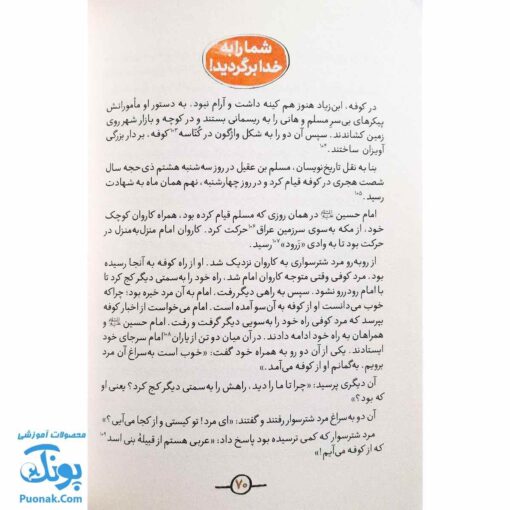 شما را به
خدا برگردید!
در کوفه، ابن‌زیاد هنوز هم کینه داشت و آرام نبود. به دستور او مأمورانش
پیکرهای بی‌سرِ مسلم و هانی را به ریسمانی بستند و در کوچه و بازار شهر روی
زمین کشاندند. سپس آن دو را به شکل واژگون در کُناسه۱۰۳ کوفه، بر دار بزرگی
آویزان ساختند.۱۰۴
بنا به نقل تاریخ‌نویسان، مسلم بن عقیل در روز سه‌شنبه هشتم ذی‌حجه سال
شصت هجری در کوفه قیام کرد و در روز چهارشنبه، نهم همان ماه به شهادت
رسید.۱۰۵
امام حسین در همان روزی که مسلم قیام کرده بود، همراه کاروان کوچک
خود، از مکه به‌سوی سرزمین عراق۱۰۶ حرکت کرد. کاروان امام منزل‌به‌منزل در
حرکت بود تا به وادی «زَرود»۱۰۷ رسید.
از روبه‌رو مرد شترسواری به کاروان نزدیک شد. او از راه کوفه به آنجا رسیده
بود. مرد کوفی وقتی متوجه کاروان امام شد، راه خود را به‌سمتی دیگر کج کرد تا
با امام رودررو نشود. سپس به راهی دیگر رفت. امام به آن مرد خیره بود؛ چراکه
خوب می‌دانست او از کوفه به آن‌سو آمده است. امام می‌خواست از اخبار کوفه
بپرسد که مرد کوفی راه خود را به‌سویی دیگر گرفت و رفت. امام حسین و
همراهان به راه خود ادامه دادند. در آن میان دو تن از یاران۱۰۸ امام سرجای خود
ایستادند. یکی از آن دو رو به همراه خود گفت: «خوب است به‌سراغ آن مرد
برویم. به‌گمانم او از کوفه می‌آمد.»
آن دیگری پرسید: «چرا تا ما را دید، راهش را به‌سمتی دیگر کج کرد؟ یعنی او
که بود؟»
آن دو به‌سراغ مرد شترسوار رفتند و گفتند: «ای مرد! تو کیستی و از کجا می‌آیی؟»
مرد شترسوار که کمی ترسیده بود پاسخ داد: «عربی هستم از قبیلهٔ بنی اسد۱۰۹
که از کوفه می‌آیم!»
۷۰
محصولات آموزشی
پونک
Puonak.Com